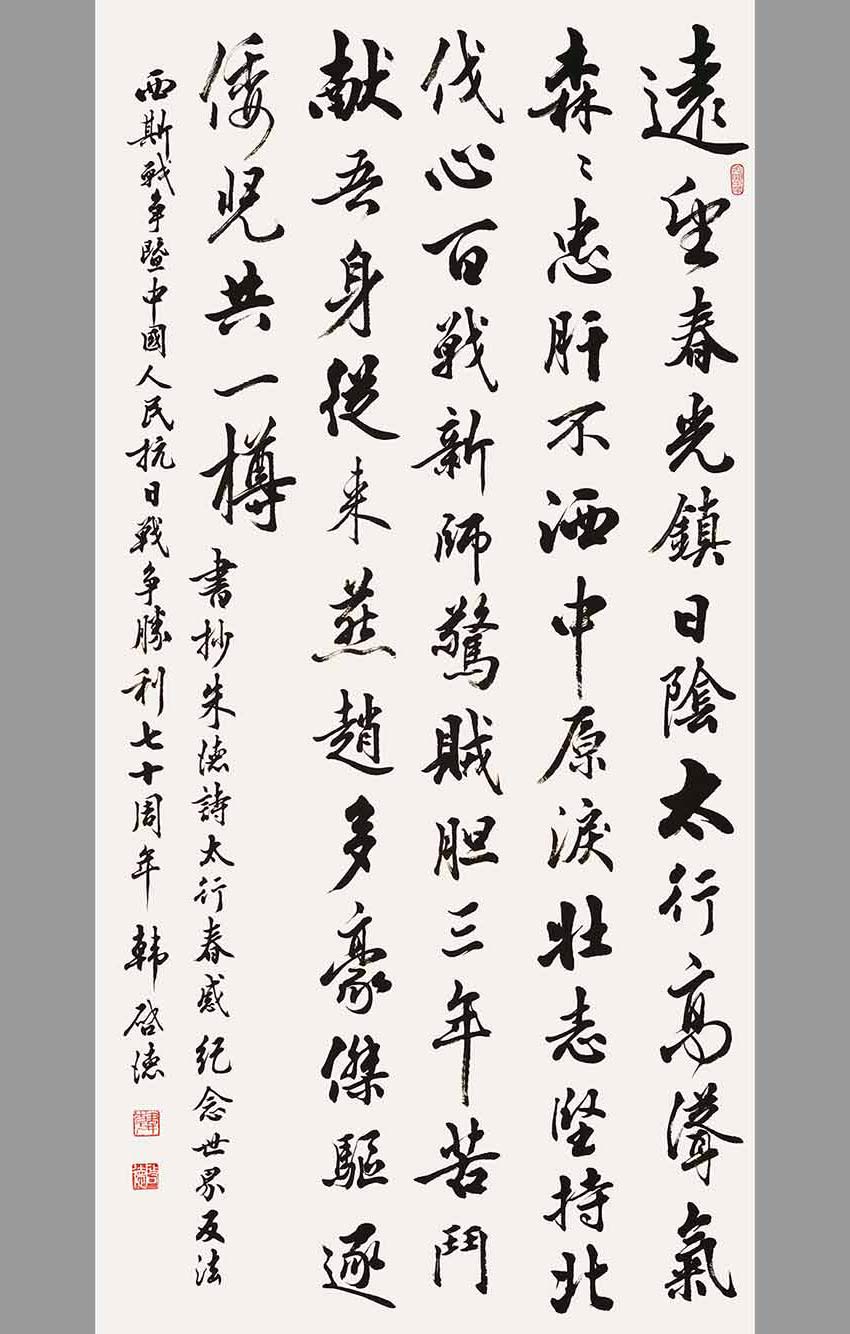 遠望春光鎮日陰太行高聳氣
森〻忠肝不洒中原淚壯志堅持北
伐心百戰新師驚賊胆三年苦鬥
献吾身從来燕趙多豪傑驅逐
倭児共一樽 書抄朱徳詩太行春感 紀念世界反法
西斯戰争暨中國人民抗日戰争勝利七十周年 韩啓徳